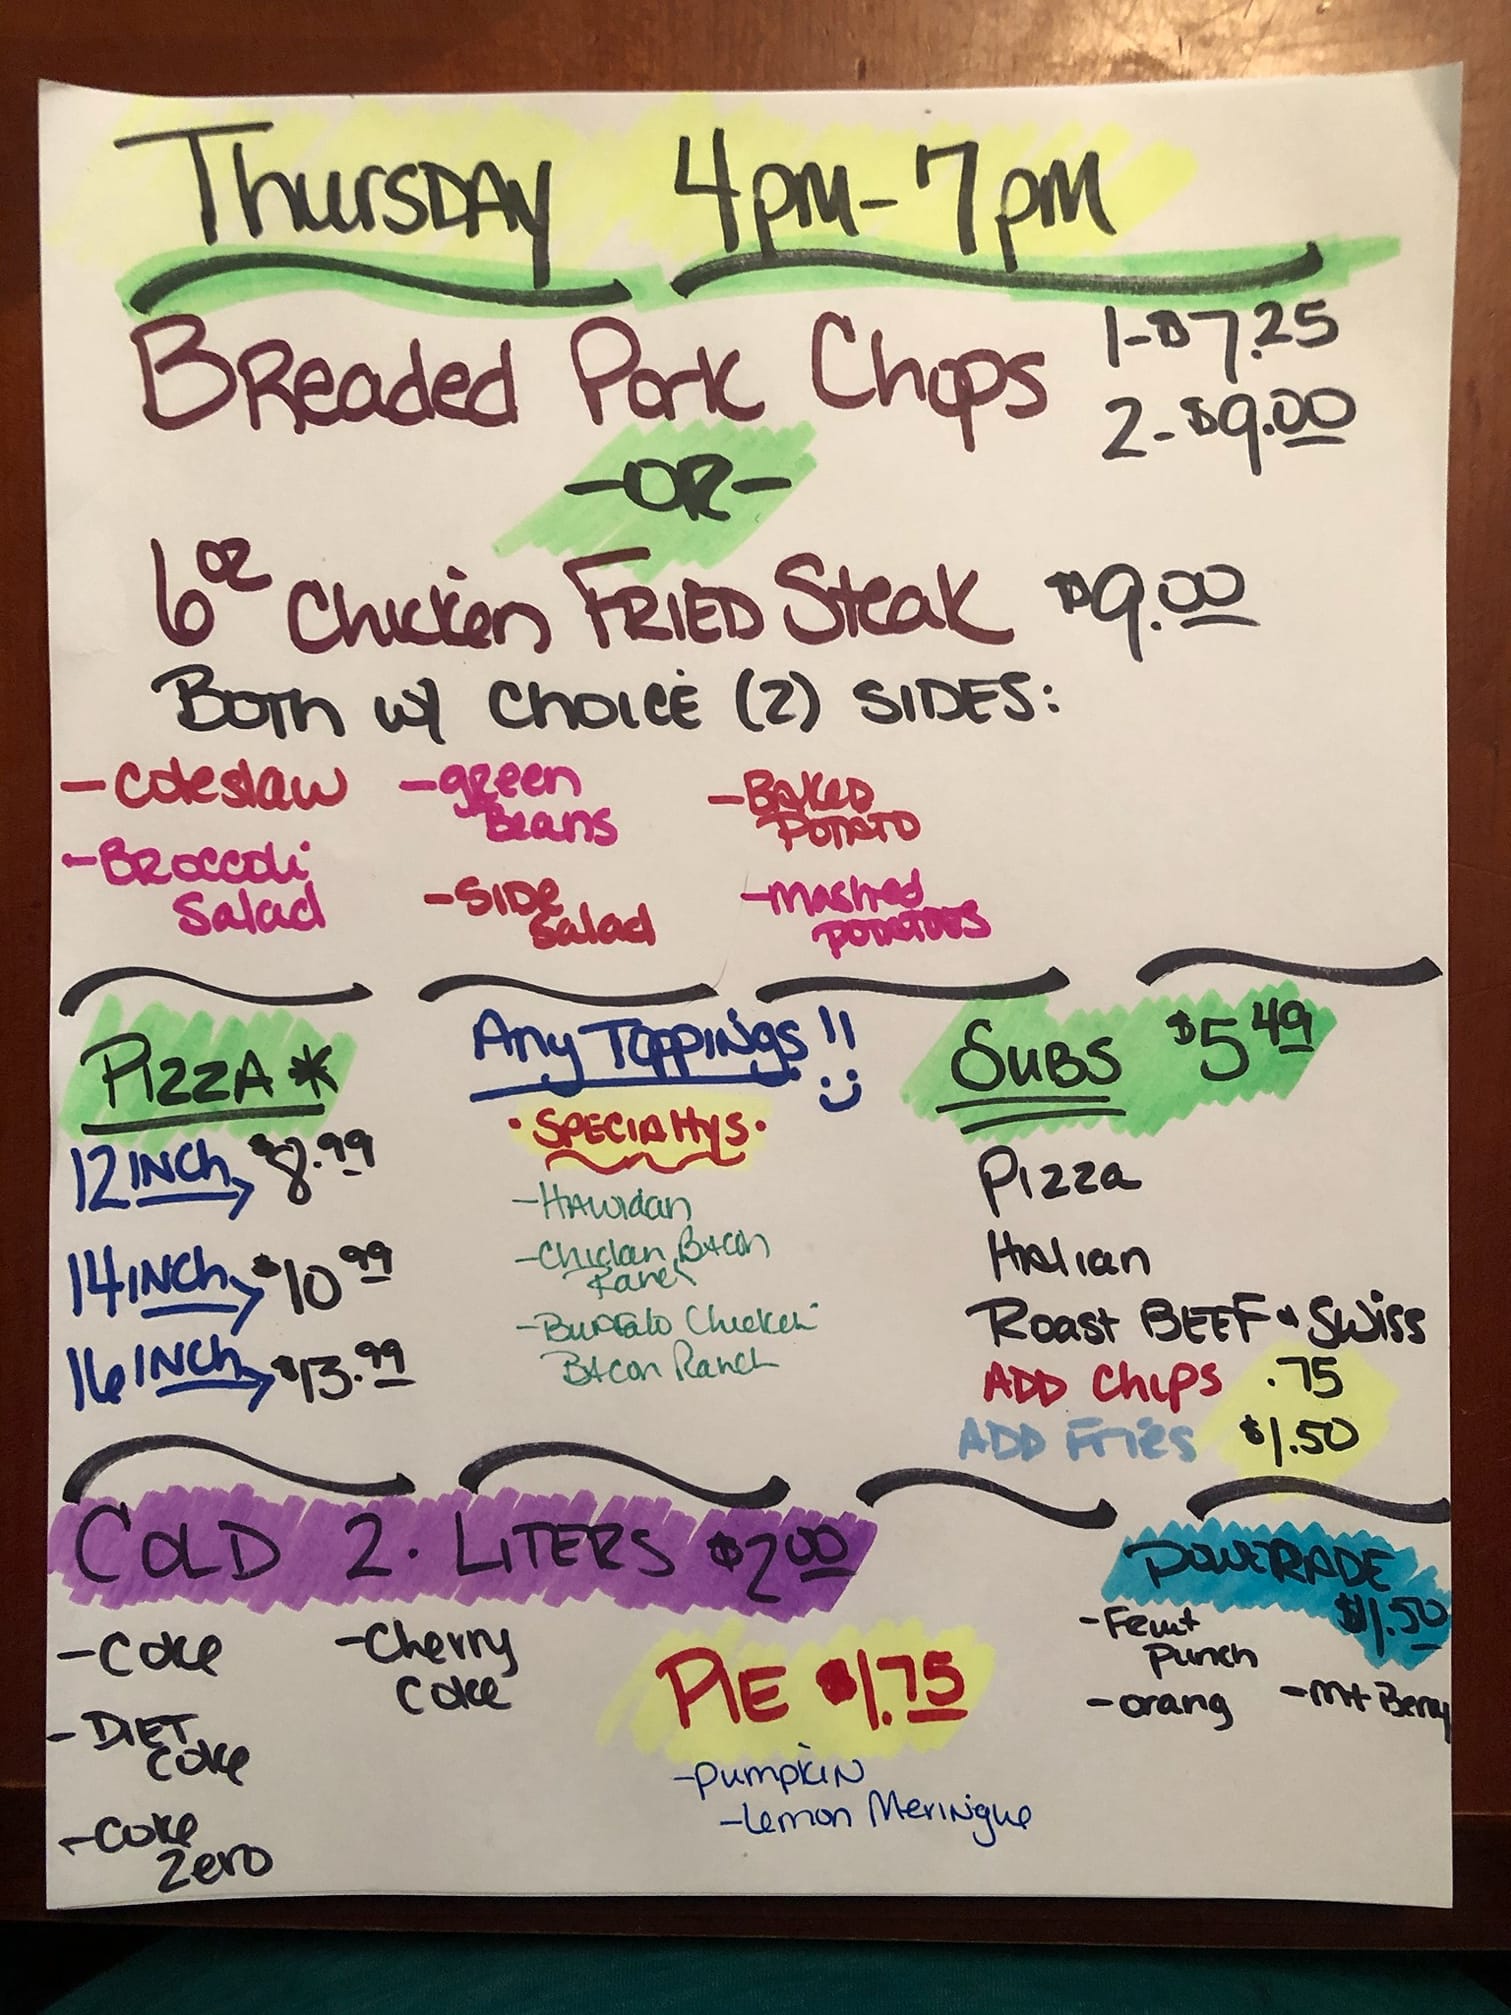 Thursday 4pm-7pm
Breaded Pork Chops 1-$7.25
2-$9.00
-OR-
6oz Chicken Fried Steak $9.00
Both w/ choice (2) sides:
-Coleslaw
-Broccoli
Salad
-green
Beans
-Side
Salad
-Baked
Potato
-Mashed
Potatoes
Pizza *
12 inch → $8.99
14 inch → $10.99
16 inch → $13.99
Any Toppings!!
• Specialtys •
-Hawiian
-Chicken Bacon
Ranch
-Buffalo Chicken
Bacon Ranch
Subs $5.49
Pizza
Italian
Roast Beef & Swiss
Add Chips .75
Add Fries $1.50
Cold 2. Liters $2.00
-Coke
-Diet
Coke
-Coke
Zero
-Cherry
Coke
Pie $1.75
-Pumpkin
-Lemon Meringue
Powerade
$1.50
-Fruit
Punch
-orang
-Mt Berry